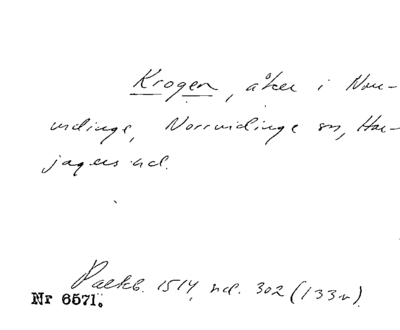 Krogen, åker i Norr-
vidinge, Norrvidinge sn, Har-
jagers hd.
Palteb. 1514, hd. 302 (133v).
Nr 6571.